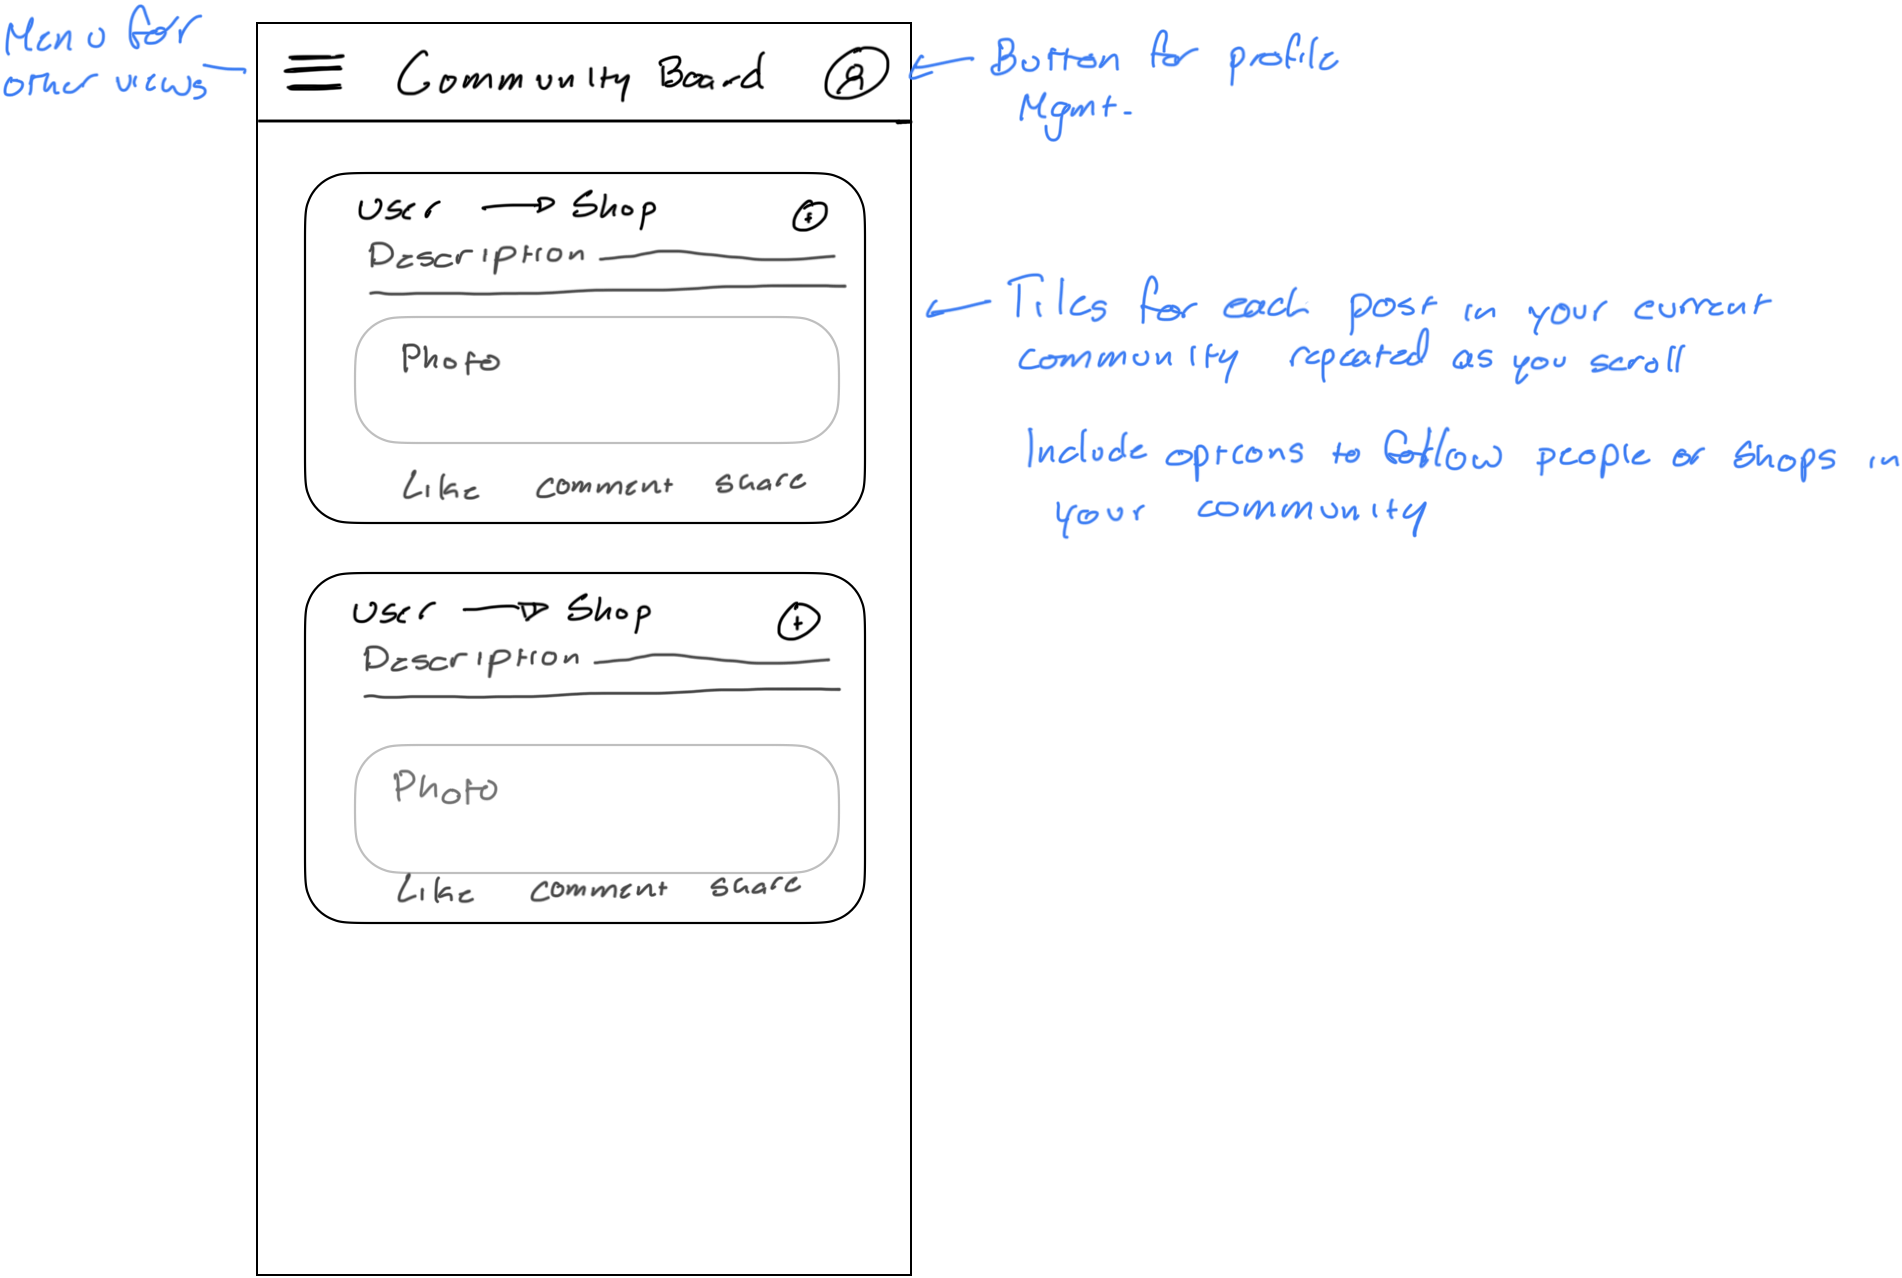 Menu for
other views
Community Board
Button for profile
Mgmt.
User → Shop
Description
Photo
Like comment share
Tiles for each post in your current
community repeated as you scroll
Include options to follow people or shops in
your community
User → Shop
Description
Photo
Like comment share